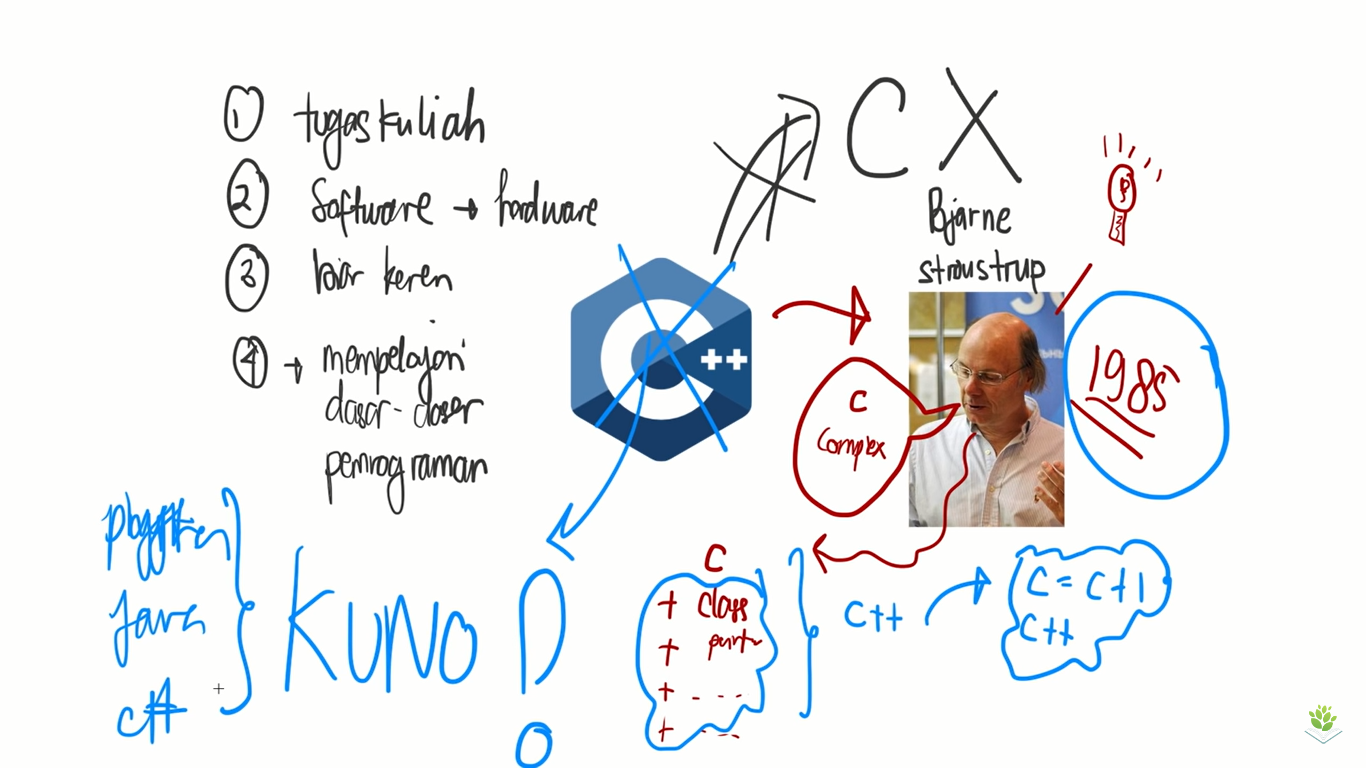 1 tugas kuliah
2 Software → hardware
3 biar keren
4 → mempelajari
dasar-dasar
pemrograman
CX
Bjarne
stroustrup
C++
C
Complex
1985
python
Java
C++
KUNO
C
+ class
+
+ ----
+ ----
C++
C = C+1
C++